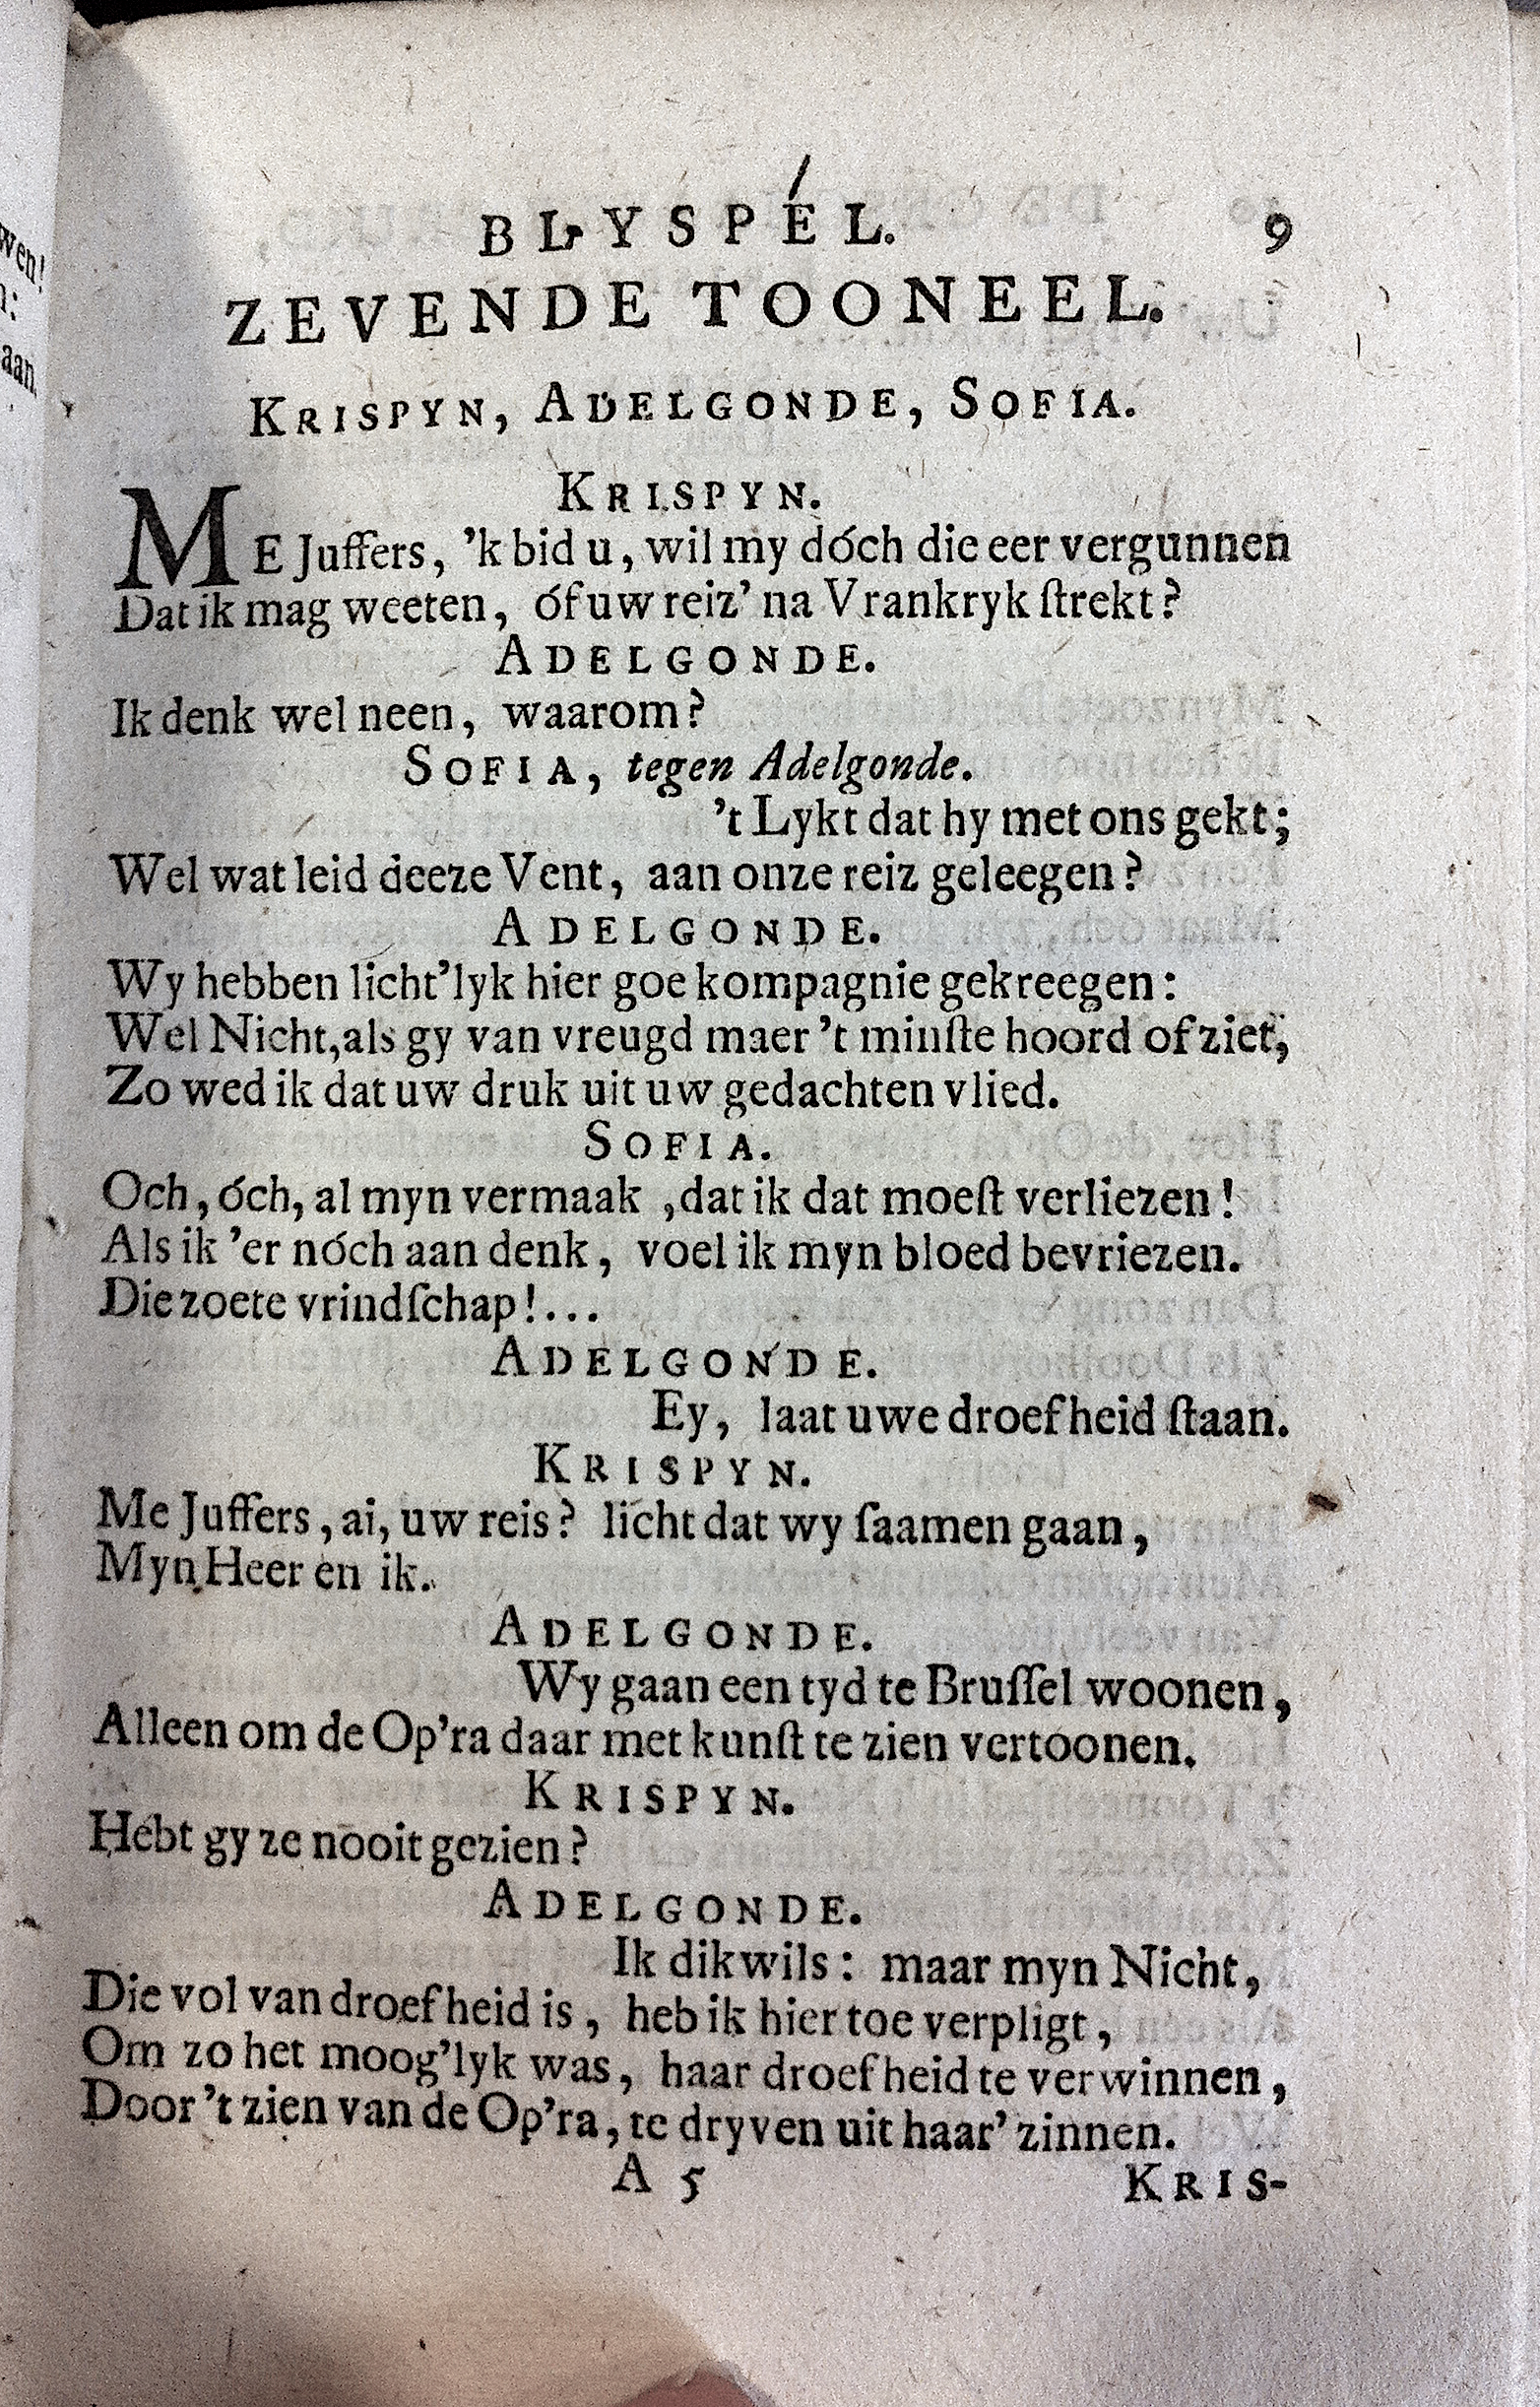 BLYSPEL. 9
ZEVENDE TOONEEL.
KRISPYN, ADELGONDE, SOFIA.
KRISPYN.
ME Juffers, 'k bid u, wil my dóch die eer vergunnen
Dat ik mag weeten, óf uw reiz' na Vrankryk ſtrekt?
ADELGONDE.
Ik denk wel neen, waarom?
SOFIA, tegen Adelgonde.
't Lykt dat hy met ons gekt;
Wel wat leid deeze Vent, aan onze reiz geleegen?
ADELGONDE.
Wy hebben licht'lyk hier goe kompagnie gekreegen:
Wel Nicht, als gy van vreugd maer 't minſte hoord of ziet,
Zo wed ik dat uw druk uit uw gedachten vlied.
SOFIA.
Och, óch, al myn vermaak, dat ik dat moeſt verliezen!
Als ik 'er nóch aan denk, voel ik myn bloed bevriezen.
Die zoete vrindſchap!...
ADELGONDE.
Ey, laat uwe droefheid ſtaan.
KRISPYN.
Me Juffers, ai, uw reis? licht dat wy ſaamen gaan,
Myn Heer en ik.
ADELGONDE.
Wy gaan een tyd te Bruſſel woonen,
Alleen om de Op'ra daar met kunſt te zien vertoonen.
KRISPYN.
Hebt gy ze nooit gezien?
ADELGONDE.
Ik dikwils: maar myn Nicht,
Die vol van droefheid is, heb ik hier toe verpligt,
Om zo het moog'lyk was, haar droefheid te verwinnen,
Door 't zien van de Op'ra, te dryven uit haar' zinnen.
A 5 KRIS-